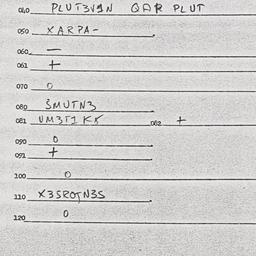 040 PLUT3V1N QAR PLUT
050 XARPA-
060 —
061 +
070 0
080 3MUTN3
081 UM3T1KK 082 +
090 0
091 +
100 0
110 X3SROTN3S
120 0